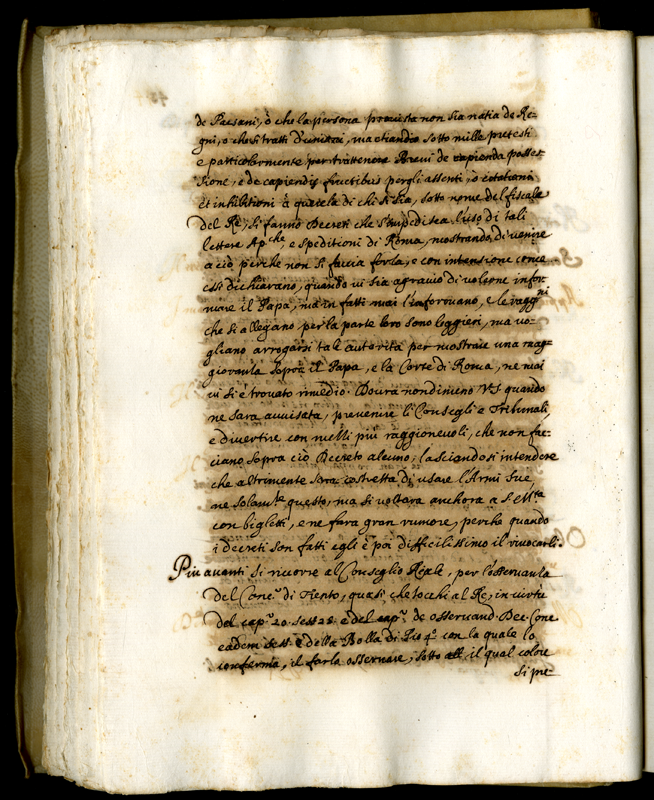 de Paesani, ò che la persona provista non sia natia de Re-
gni, o che si tratti d'unioni, ma etiandio sotto mille pretesti
e particolarmente per trattenere Brevi de capienda posses-
sione, e de capiendis fructibus per gli assenti, ò
et inhibitioni à querela di chi si sia, sotto nome del fiscale
del Rè, si fanno Decreti che s'impedisca l'uso di tali
lettere Apche, e speditioni di Roma, mostrando di venire
a ciò perche non si faccia forza, e con intensione come
essi dichiarano, quando vi sia agravio di volerne infor-
mare il Papa, ma in fatti mai l'informano, e le raggni
che si allegano per la parte loro sono leggieri, ma vo-
gliano arrogarsi tale autorità per mostrare una mag-
gioranza sopra il Papa, e la Corte di Roma, ne mai
vi si è trovato rimedio. Dovra nondimeno VS quando
ne sara avvisata, prevenire li Consegli e Tribunali,
e divertire con mezzi più raggionevoli, che non fac-
ciano sopra ciò Decreto alcuno, lasciandosi intendere
che altrimente sara costretta di usare l'Armi sue,
ne solamte questo, ma si voltara anchora a S. Mta
con biglietti, e ne fara gran rumore, perche quando
i decreti son fatti egli è poi difficilissimo il rivocarli.
Più avanti si ricorre al Conseglio Reale, per l'osservanza
del Conco di Trento, quasi che tocchi al Re, in virtù
del capo 20. sess 25. e del capo de osservand. Dec. Conc
eadem sess. e della Bolla di Pio 4o con la quale lo
conferma, il farla osservare, sotto il qual colore
si pre-